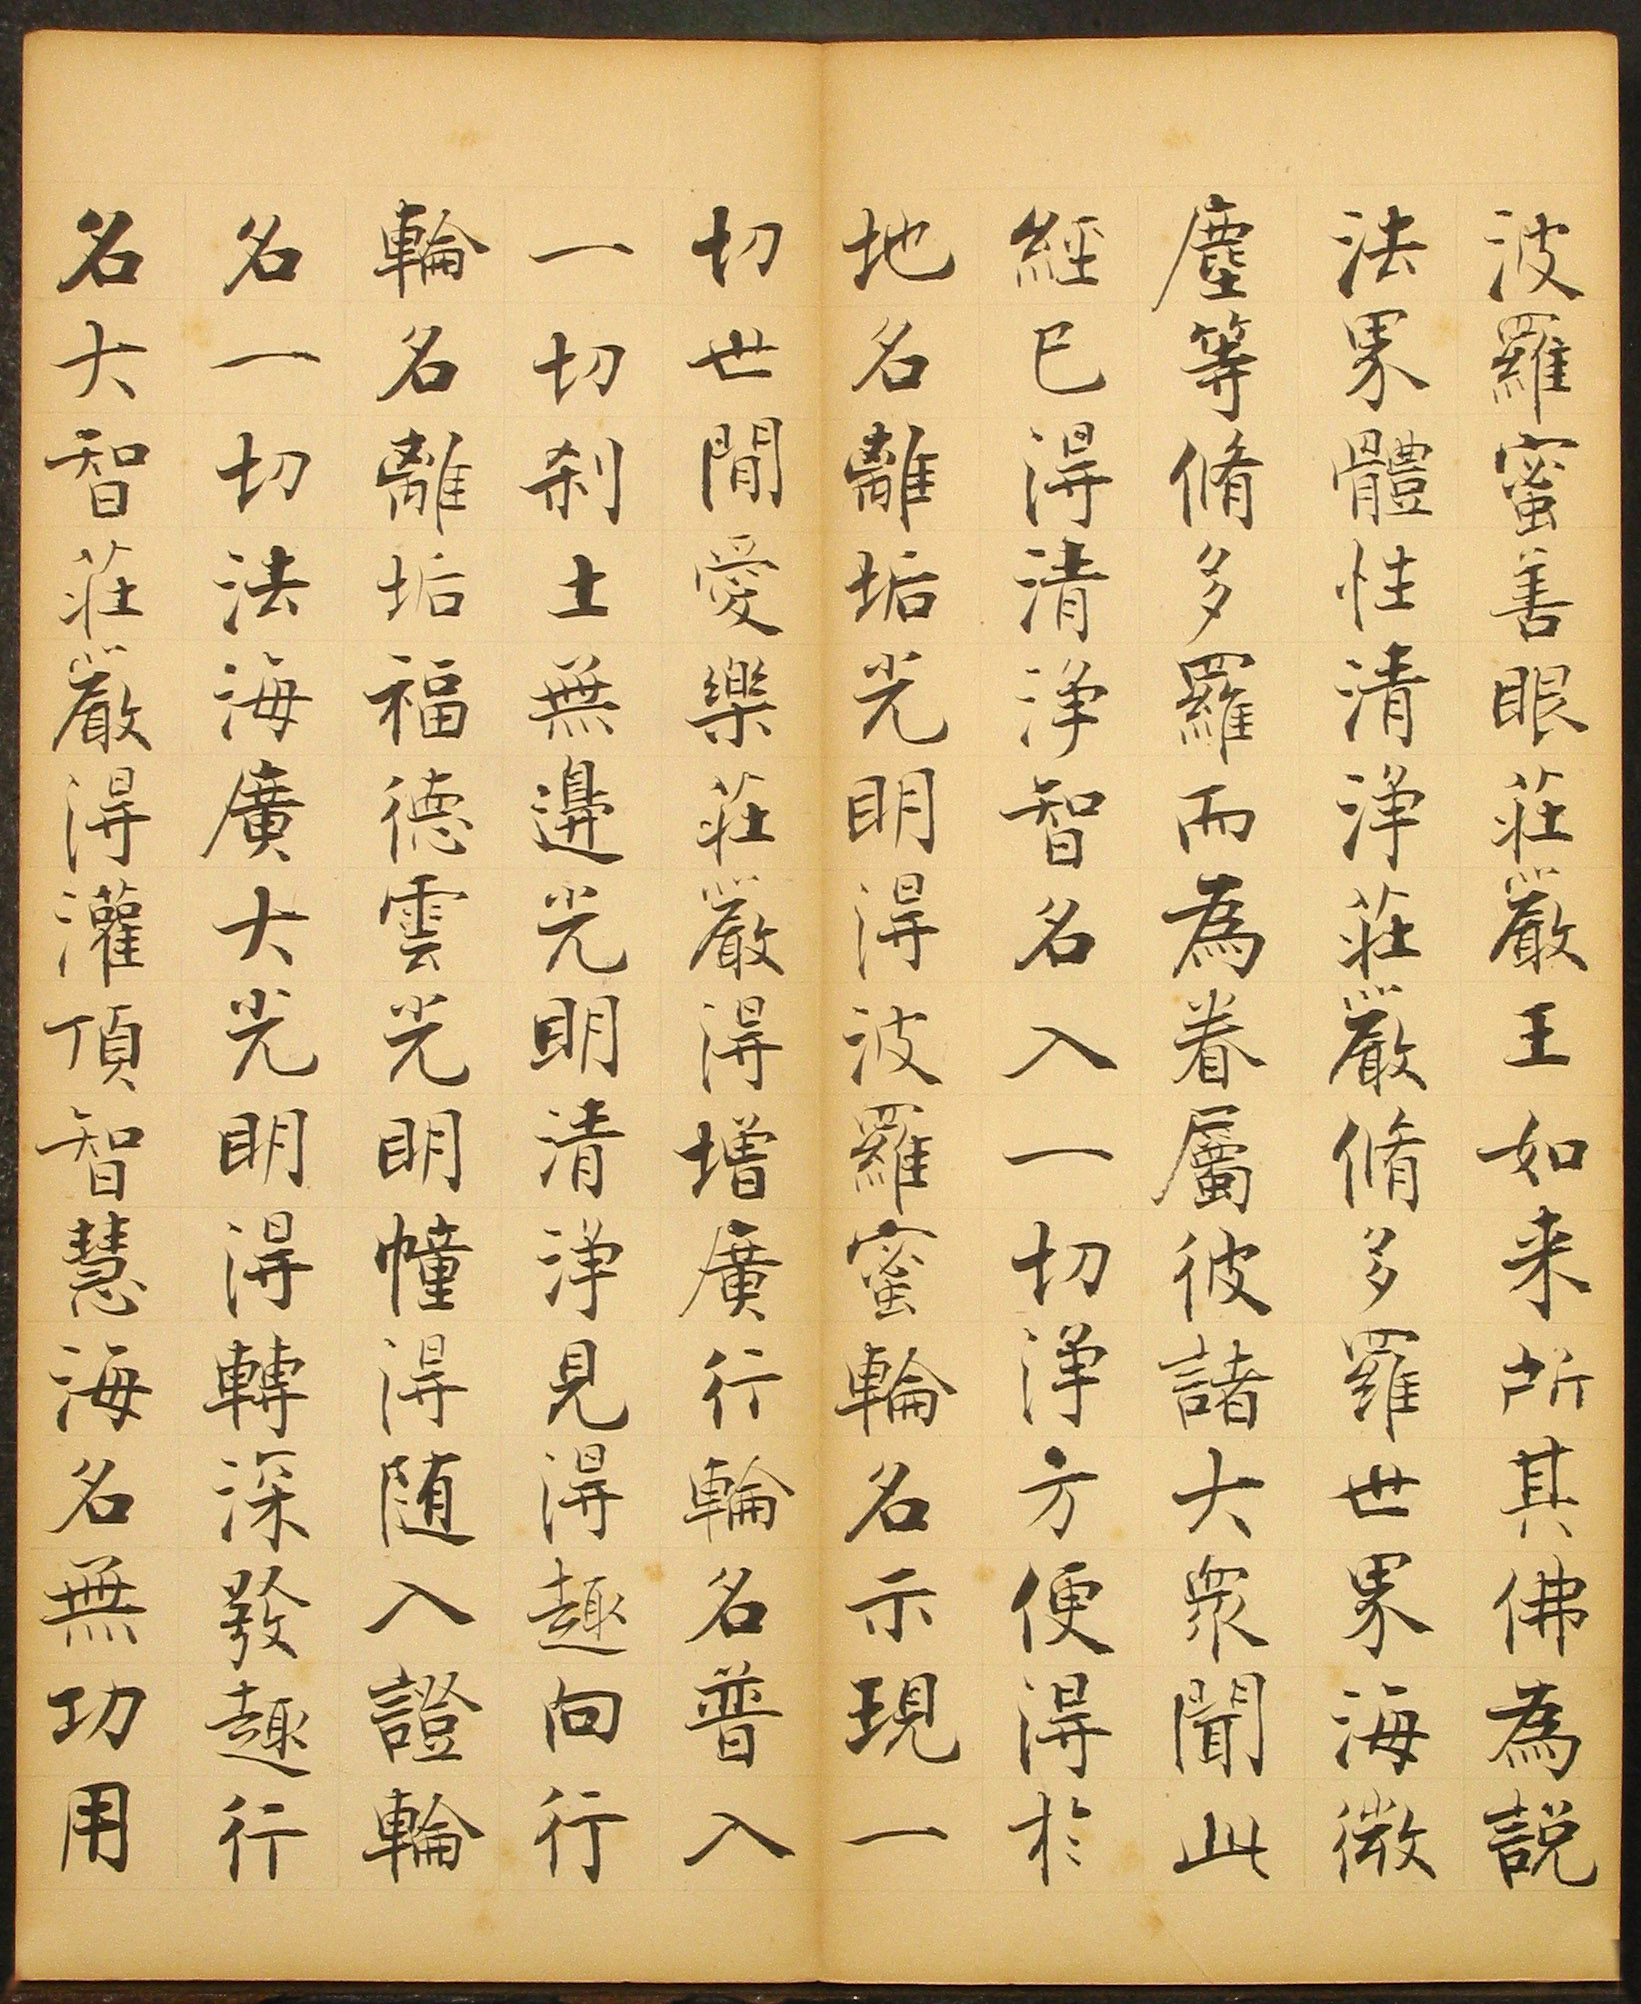 波羅蜜善眼莊嚴王如来所其佛為說
法界體性清淨莊嚴脩多羅世界海微
塵等脩多羅而為眷屬彼諸大眾聞此
經已得清淨智名入一切淨方便得於
地名離垢光明得波羅蜜輪名示現一
切世間愛樂莊嚴得增廣行輪名普入
一切刹土無邊光明清淨見得趣向行
輪名離垢福德雲光明幢得随入證輪
名一切法海廣大光明得轉深發趣行
名大智莊嚴得灌頂智慧海名無功用